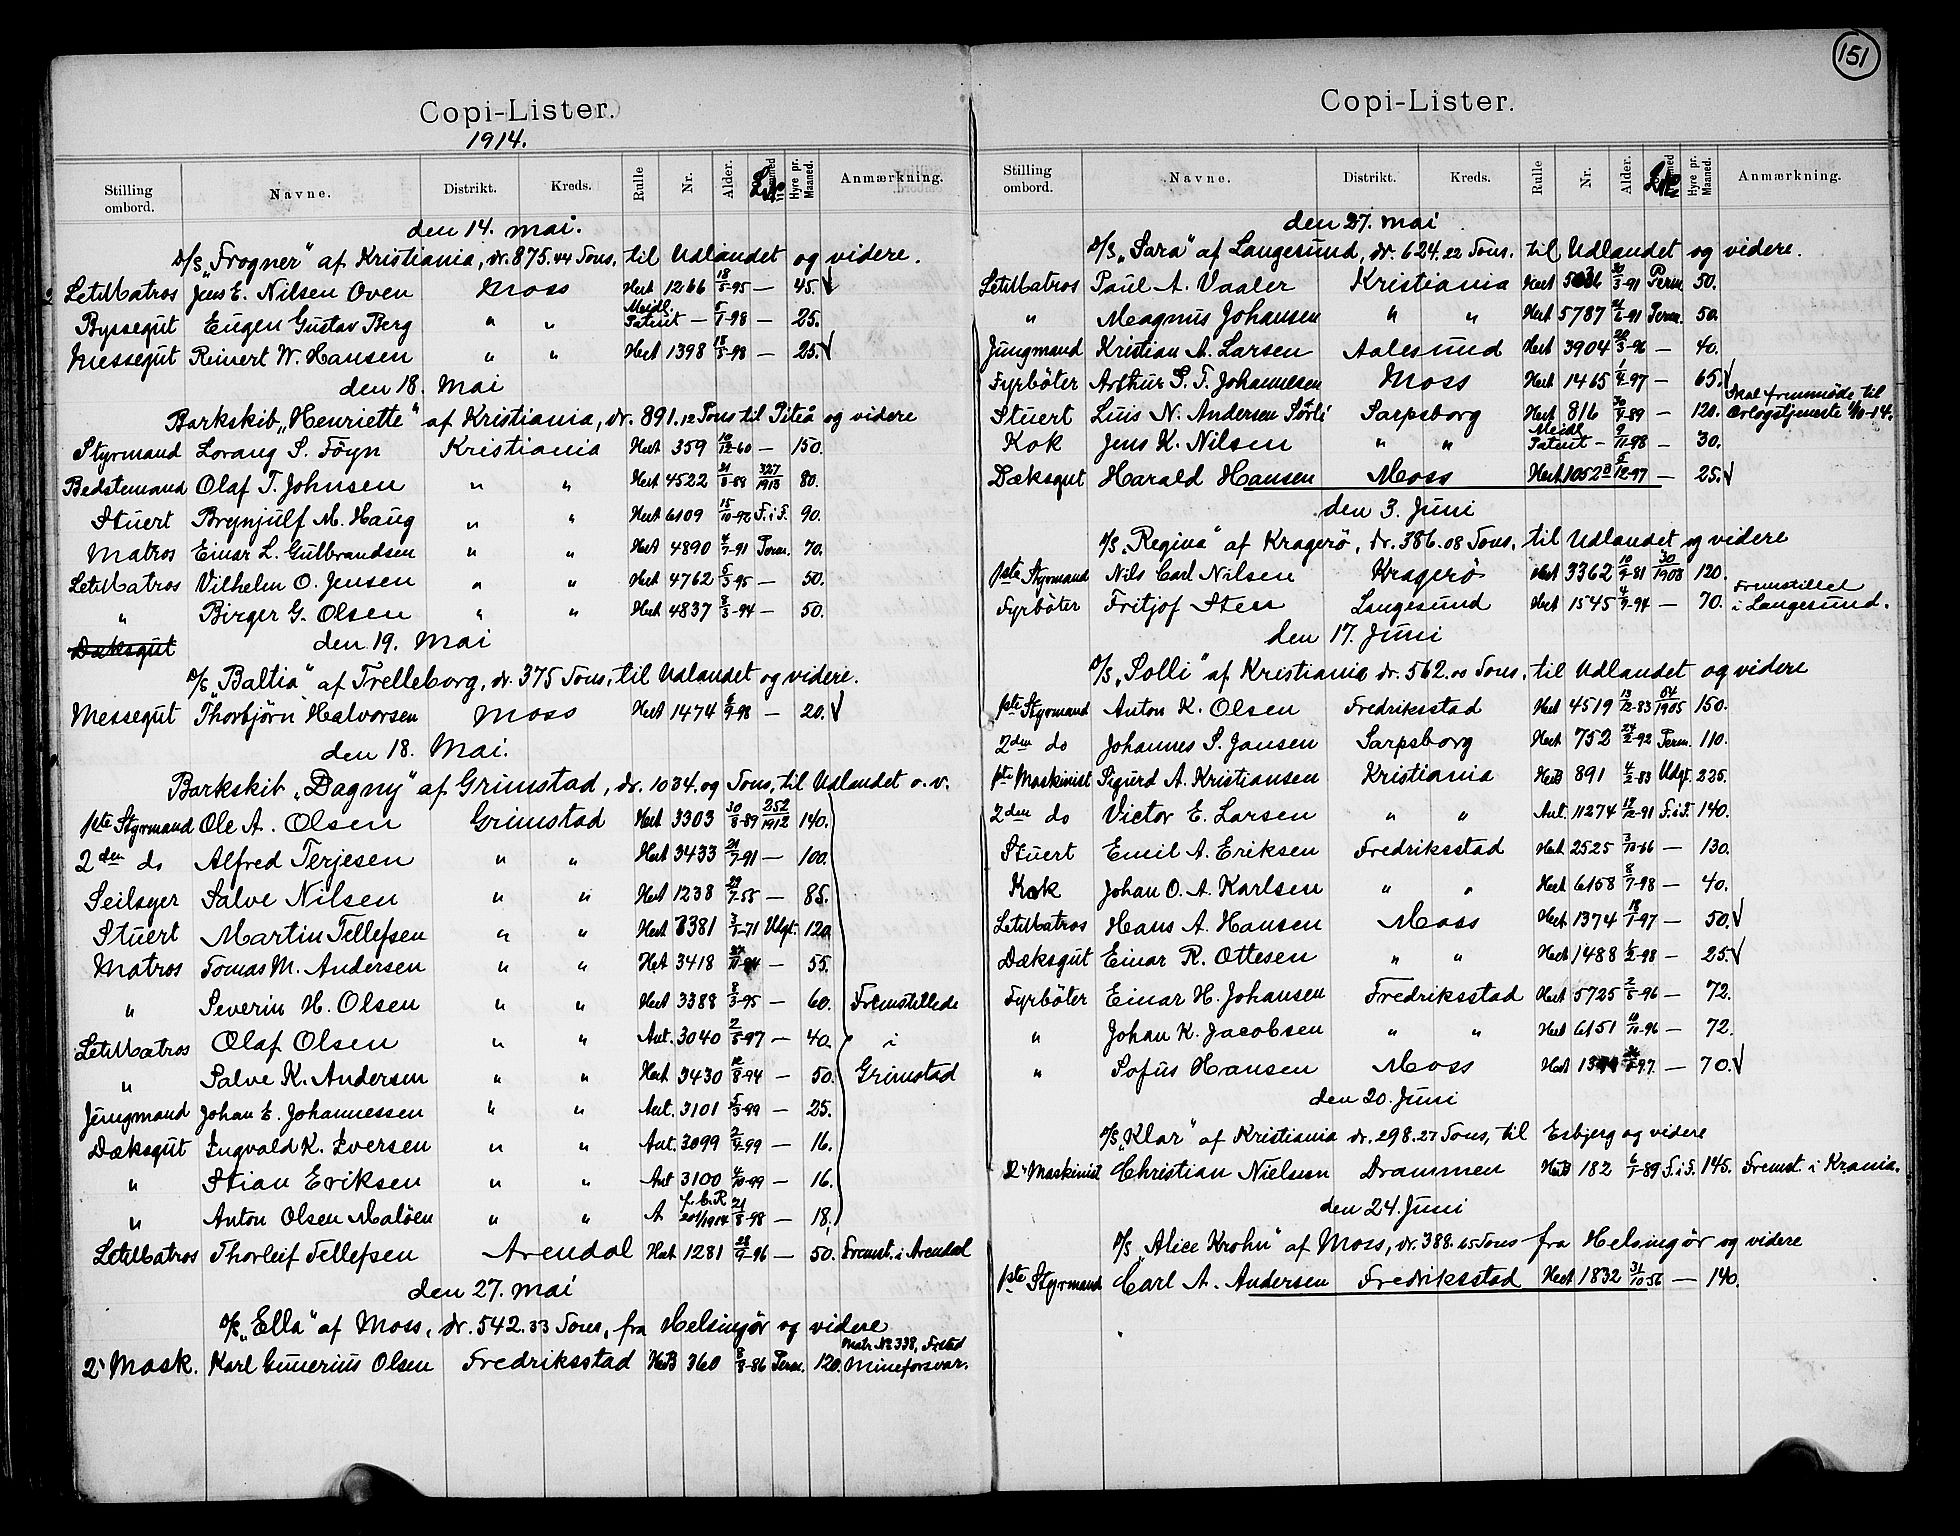 Copi-Lister.
1914.
Stilling ombord. Navne. Distrikt. Kreds. Rulle Nr. Alder. Hyre pr. Maaned. Anmærkning.
den 14. Mai.
D/S „Frogner" af Kristiania, dr. 875.44 Tons, til Udlandet og videre.
Letmatros Jens E. Nilsen Oven Moss Hert 1266 18/5-95 — 45. √
Byssegut Eugen Gustav Berg " " Meidl. Patent — 5/1-98 — 25.
Messegut Reinert W. Hansen " " Hert 1398 18/5-98 — 25. √
den 18. Mai
Barkskib „Henriette" af Kristiania, dr. 891.12 Tons til Piteå og videre
Styrmand Lorang S. Föyn Kristiania Hert 359 10/12-60 — 150.
Bedstemand Olaf T. Johnsen " " Hert 4522 21/8-88 327/1913 80.
Stuert Brynjulf M. Haug " " Hert 6109 15/10-92 F.i.F. 90.
Matros Einar L. Gulbrandsen " " Hert 4890 4/7-91 Perm. 70.
Letmatros Vilhelm O. Jensen " " Hert 4762 5/3-95 — 50.
" Birger G. Olsen " " Hert 4837 8/3-94 — 50.
Dæksgut den 19. Mai
D/S „Baltia" af Trelleborg, dr. 375 Tons, til Udlandet og videre.
Messegut Thorbjörn Halvorsen Moss Hert 1474 6/9-98 — 20. √
den 18. Mai.
Barkskib „Dagny" af Grimstad, dr. 1034.09 Tons, til Udlandet o. v.
1ste Styrmand Ole A. Olsen Grimstad Hert 3303 30/8-89 252/1912 140.
2den do Alfred Terjesen " " Hert 3433 21/7-91 — 100.
Seilsyer Salve Nilsen " " Hert 1238 29/7-55 — 85.
Stuert Martin Tellefsen " " Hert 3381 3/1-71 Udgt. 120
Matros Tomas M. Andersen " " Hert 3418 — 55.
" Severin H. Olsen " " Hert 3388 8/3-95 — 60. Fremstillede
Letmatros Olaf Olsen " " Ant. 3040 2/5-97 — 40. i
" Salve K. Andersen " " Hert 3430 12/8-94 — 50. Grimstad
Jungmand Johan E. Johannessen " " Ant. 3101 5/3-99 — 25.
Dæksgut Ingvald K. Iversen " " Ant. 3099 2/4-99 — 16.
" Stian Eriksen " " Ant 3100 4/10-99 — 16.
" Anton Olsen Maløen " " A 21/8-98 — 18.
Letmatros Thorleif Tellefsen Arendal Hert 1281 28/9-96 — 50. Fremst. i Arendal
den 27. Mai
D/S „Ella" af Moss, dr. 542.33 Tons, fra Helsingör og videre
2' Mask. Karl Gunerius Olsen Fredriksstad HertB 360 8/8-86 Perm. 120. Matr. No 338, Frstad Mineforsvar.
151
Copi-Lister.
Stilling ombord. Navne. Distrikt. Kreds. Rulle Nr. Alder. Hyre pr. Maaned. Anmærkning.
den 27. Mai
D/S „Sara" af Langesund, dr. 624.22 Tons. til Udlandet og videre.
Letmatros Paul A. Vaaler Kristiania Hert 30/3-91 Perm. 50.
" Magnus Johansen " " Hert 5787 21/6-91 Perm. 50.
Jungmand Kristian A. Larsen Aalesund Hert 3904 20/3-96 — 40.
Fyrböter Arthur S. F. Johannesen Moss Hert 1465 1/4-97 — 65. √
Stuert Luis N. Andersen Sörli Sarpsborg Hert 816 30/9-89 — 120. Skal fremmöde til Orlogstjeneste 1/10-14.
Kok Jens K. Nilsen " " Meidl. Patent — 9/11-98 — 30.
Dæksgut Harald Hansen Moss Hert 1052 B 5/12-97 — 25. √
den 3. Juni
D/S „Regina" af Kragerö, dr. 386.08 Tons, til Udlandet og videre
1ste Styrmand Nils Carl Nilsen Kragerö Hert 3362 10/9-81 30/1908 120.
Fyrböter Fritjof Steen Langesund Hert 1545 4/9-94 — 70. Fremstillet i Langesund.
den 17. Juni
D/S „Solli" af Kristiania dr. 562.00 Tons, til Udlandet og videre
1ste Styrmand Anton K. Olsen Fredriksstad Hert 4519 13/12-83 54/1905 150.
2den do Johannes S. Jansen Sarpsborg Hert 752 24/2-92 Perm. 110.
1ste Maskinist Sigurd A. Kristiansen Kristiania HertB 891 4/2-83 Udgt. 225.
2den do Victor E. Larsen " " Ant. 11274 12/12-91 F.i.F. 140.
Stuert Emil A. Eriksen Fredriksstad Hert 2525 3/10-66 — 130.
Kok Johan O. A. Karlsen " " Hert 6158 8/7-98 — 40.
Letmatros Hans A. Hansen Moss Hert 1374 18/1-97 — 50. √
Dæksgut Einar R. Ottesen " " Hert 1488 6/2-98 — 25. √
Fyrböter Einar H. Johansen Fredriksstad Hert 5725 2/5-96 — 72.
" Johan K. Jacobsen " " Hert 6151 10/11-96 — 72.
" Sofus Hansen Moss Hert — 70. √
den 20. Juni
D/S „Klar" af Kristiania dr. 298.27 Tons, til Esbjerg og videre
2' Maskinist Christian Nielsen Drammen HertB 182 6/1-89 F.i.F. 145. Fremst. i Krania.
den 24. Juni
D/S „Alice Krohn" af Moss, dr. 388.65 Tons fra Helsingør og videre
1ste Styrmand Carl A. Andersen Fredriksstad Hert 1832 31/10-56 — 140.